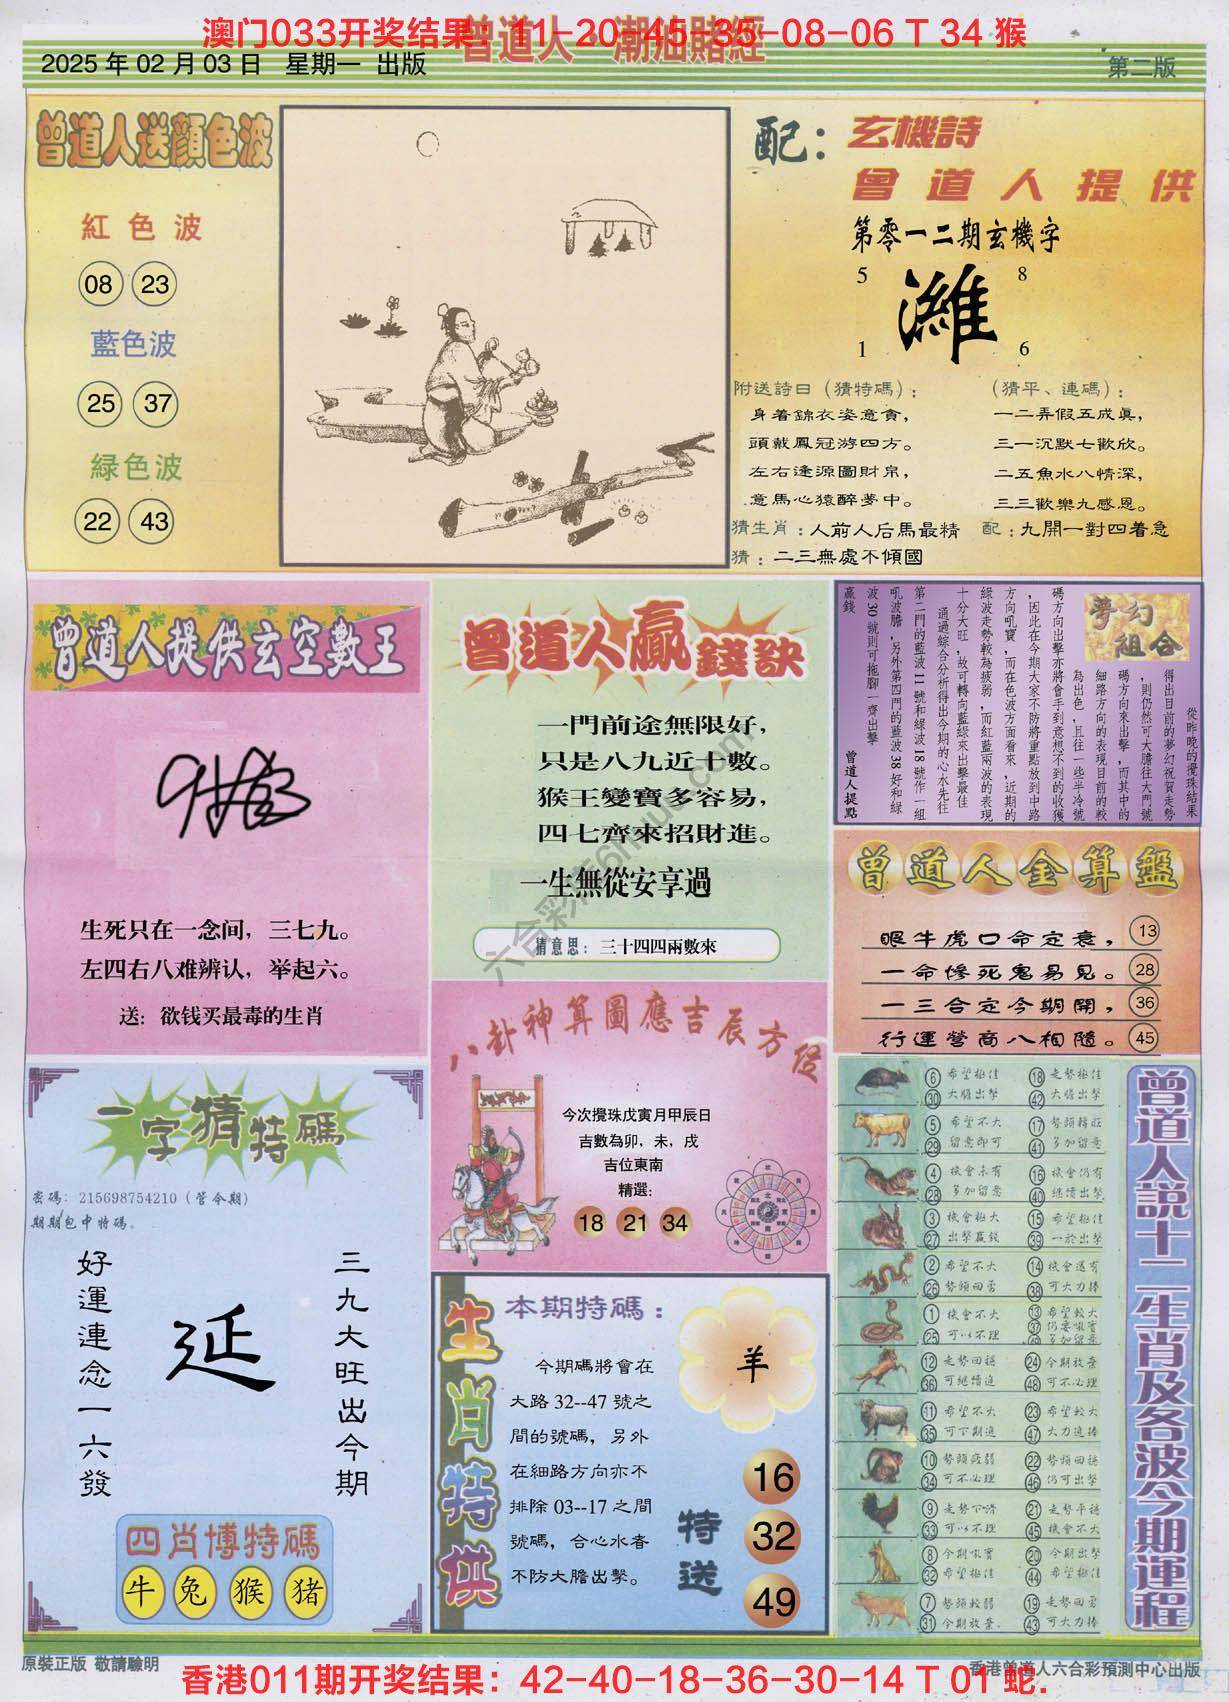 澳门033开奖结果：11-20-45-35-08-06 T 34 猴
曾道人·潮汕賭經
2025 年 02 月 03 日 星期一 出版
第二版
曾道人送顏色波
紅色波
08 23
藍色波
25 37
緑色波
22 43
配：玄機詩
曾道人提供
第零一二期玄機字
5 8
濰
1 6
附送詩曰（猜特碼）：
身着錦衣姿意貪，
頭戴鳳冠游四方。
左右逢源圖財帛，
意馬心猿醉夢中。
（猜平、連碼）：
一二弄假五成真，
三一沉默七歡欣。
二五魚水八情深，
三三歡樂九感恩。
猜生肖：人前人后馬最精
配：九開一對四着急
猜：二三無處不傾國
曾道人提供玄空數王
生死只在一念间，三七九。
左四右八难辨认，举起六。
送：欲钱买最毒的生肖
曾道人贏錢訣
一門前途無限好，
只是八九近十數。
猴王變寶多容易，
四七齊來招財進。
一生無從安享過
猜意思：三十四四兩數來
夢幻組合
從昨晚的攪珠結果
得出目前的夢幻祝賀走勢
，則仍然可大膽往大門號
碼方向來出擊，而其中的
細路方向的表現目前的較
為出色，且往一些半冷號
碼方向出擊亦將會手到意想不到的收獲
，因此在今期大家不防將重點放到中路
方向吼寶，而在色波方面看來，近期的
綠波走勢較為疲弱，而紅藍兩波的表現
十分大旺，故可轉向藍綠來出擊最佳
通過綜合分析得出今期的心水先往
第二門的藍波 11 號和綠波 18 號作一組
吼波膽，另外第四門的藍波 38 好和綠
波 30 號則可拖腳一齊出擊
贏錢
曾道人提點
曾道人金算盤
眼牛虎口命定衰， 13
一命慘死鬼易見。 28
一三合定今期開， 36
行運營商八相隨。 45
八卦神算圖應吉辰方位
今次攪珠戊寅月甲辰日
吉數為卯，未，戌
吉位東南
精選：
18 21 34
一字猜特碼
密碼：215698754210（管今期）
期期包中特碼。
三九大旺出今期
延
好運連念一六發
四肖博特碼
牛 兔 猴 猪
生肖特供
本期特碼：
今期碼將會在
大路 32--47 號之
間的號碼，另外
在細路方向亦不
排除 03--17 之間
號碼，合心水者
不防大膽出擊。
羊
特送
16
32
49
曾道人説十二生肖及各波今期運程
6 30 希望極佳 大膽出擊 18 42 走勢極佳 大膽出擊
5 29 希望不大 留意即可 17 41 勢頭轉旺 多加留意
4 28 機會未有 多加留意 16 40 機會仍有 繼續出擊
3 27 機會極大 出擊贏錢 15 39 希望極佳 一於出擊
2 26 希望不大 勢頭回勇 14 38 機會還有 可大力捧
1 25 機會不大 可以不理 13 37 希望較大 多加留意
12 36 走勢回穩 可繼續追 24 48 今期放棄 可不必理
11 35 希望不大 可下期追 23 47 希望較大 大力追捧
10 34 勢頭疲弱 可不必理 22 46 勢頭回穩 仍可出擊
9 33 走勢下滑 可以不理 21 45 走勢平穩 機會不大
8 32 今期吼寶 希望極佳 20 44 今期出擊 希望極佳
7 31 勢頭較弱 今期放棄 19 43 走勢回勇 可大力捧
原裝正版 敬請驗明
香港曾道人六合彩預測中心出版
香港011期开奖结果：42-40-18-36-30-14 T 01 蛇.